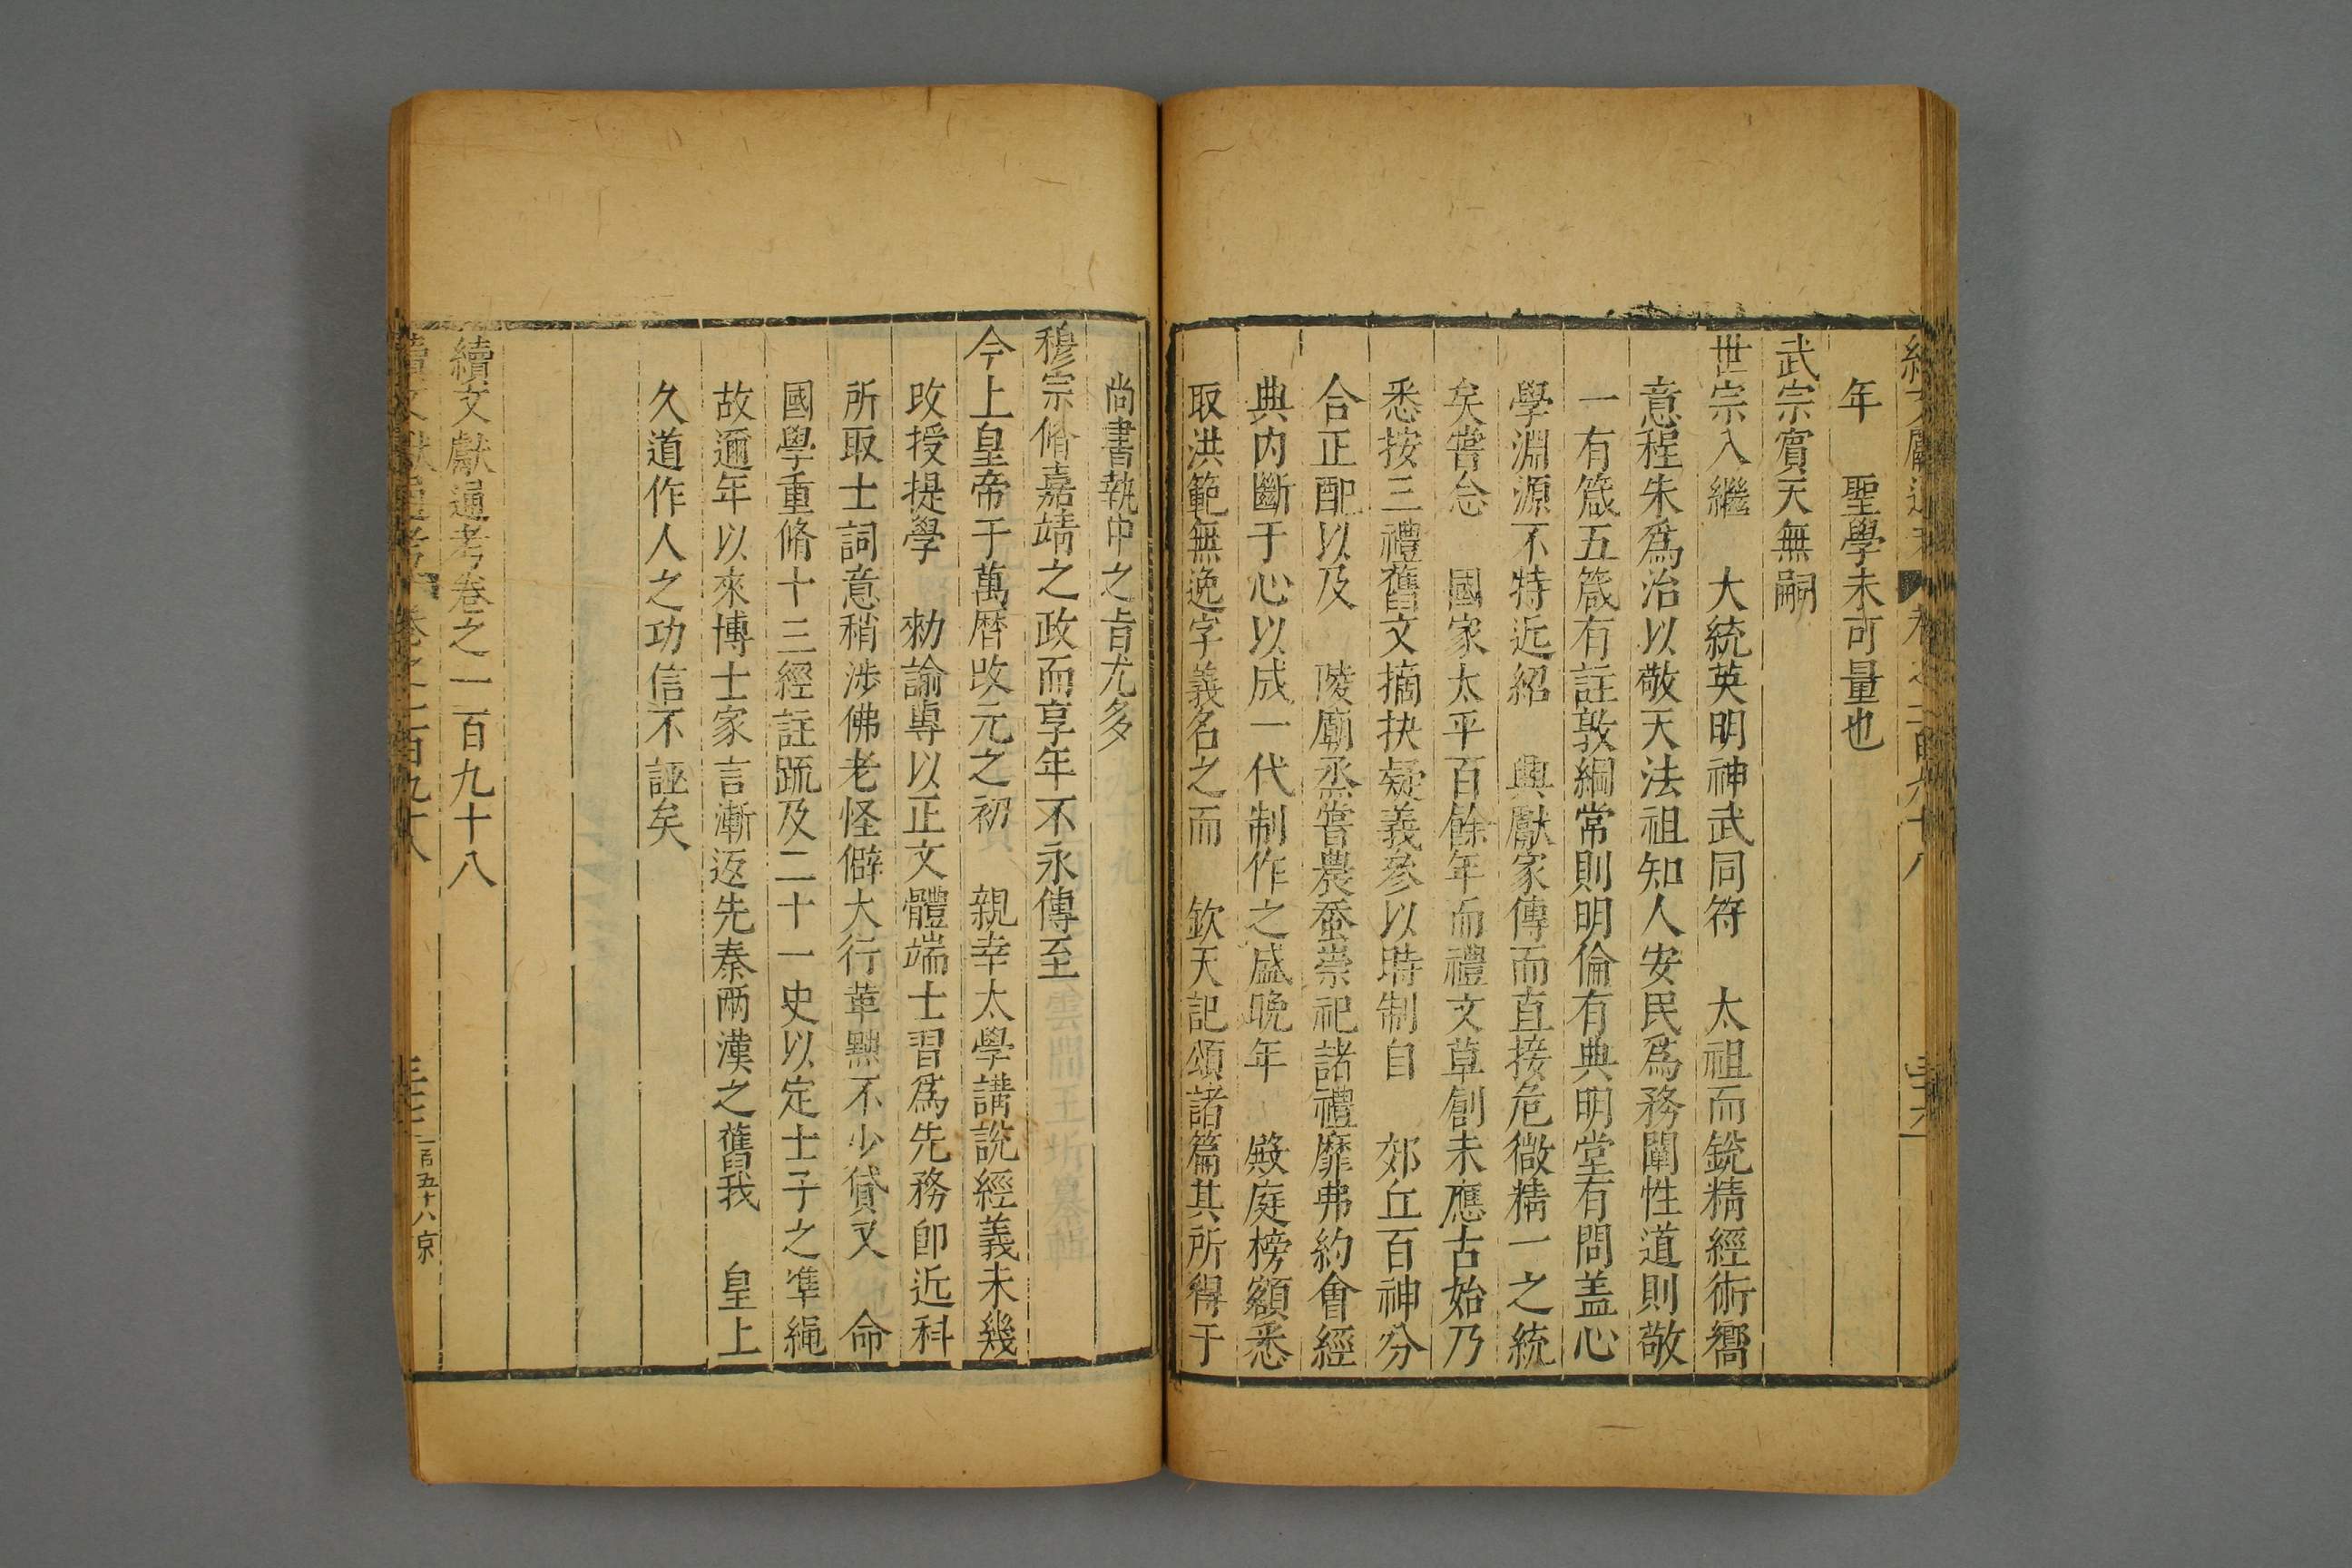 年　聖學未可量也
武宗賓天無嗣
世宗入繼　大統英明神武同符　太祖而銳精經術嚮
意程朱爲治以敬天法祖知人安民爲務闡性道則敬
一有箴五箴有註敦綱常則明倫有典明堂有問盖心
學淵源不特近紹　興獻家傳而直接危微精一之統
矣嘗㑹　國家太平百餘年而禮文草創未應古始乃
悉按三禮舊文摘抉疑義參以時制自　郊丘百神分
合正配以及　陵廟烝嘗農蚕崇祀諸禮靡弗約會經
典内斷于心以成一代制作之盛晚年　殿庭榜額悉
取洪範無逸字義名之而　欽天記頌諸篇其所得于
尚書執中之旨尤多
穆宗脩嘉靖之政而享年不永傳至
今上皇帝于萬曆改元之初　親幸太學講說經義未幾
改授提學　勑諭專以正文體端士習爲先務卽近科
所取士詞意稍涉佛老怪僻大行革黜不少貸又　命
國學重脩十三經註䟽及二十一史以定士子之準繩
故邇年以來博士家言漸返先秦兩漢之舊我　皇上
久道作人之功信不誣矣
續文獻通考卷之一百九十八
續文獻通考　卷之一百九十八
一百五十八京